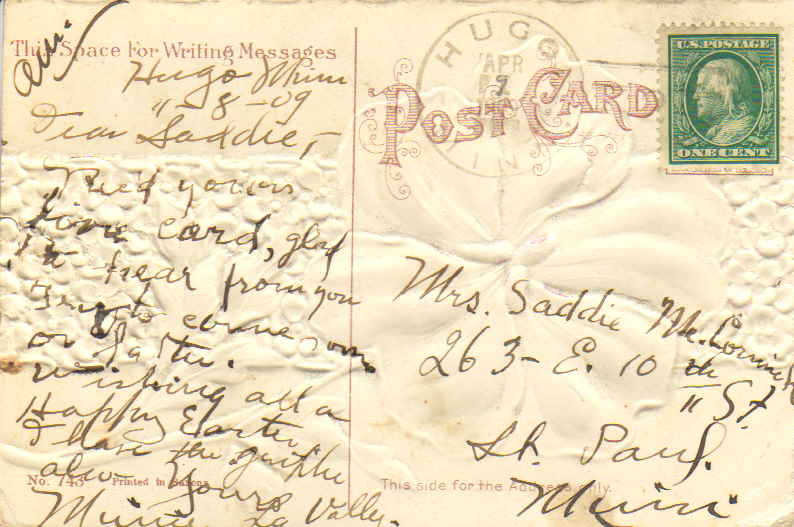 This Space For Writing Messages
Hugo Minn
11-8-09
Dear Saddie,-
Rec'd yours
card, glad
to hear from you
come soon
or later.
wishing all a
Happy Easter
I have the
also Yours
Minnie La Valley.
No. 743 Printed in Saxony
HUGO
APR
POST CARD
U.S. POSTAGE
ONE CENT
Mrs. Saddie
263- E. 10 th
St.
St. Paul.
Minn
This side for the Address only.